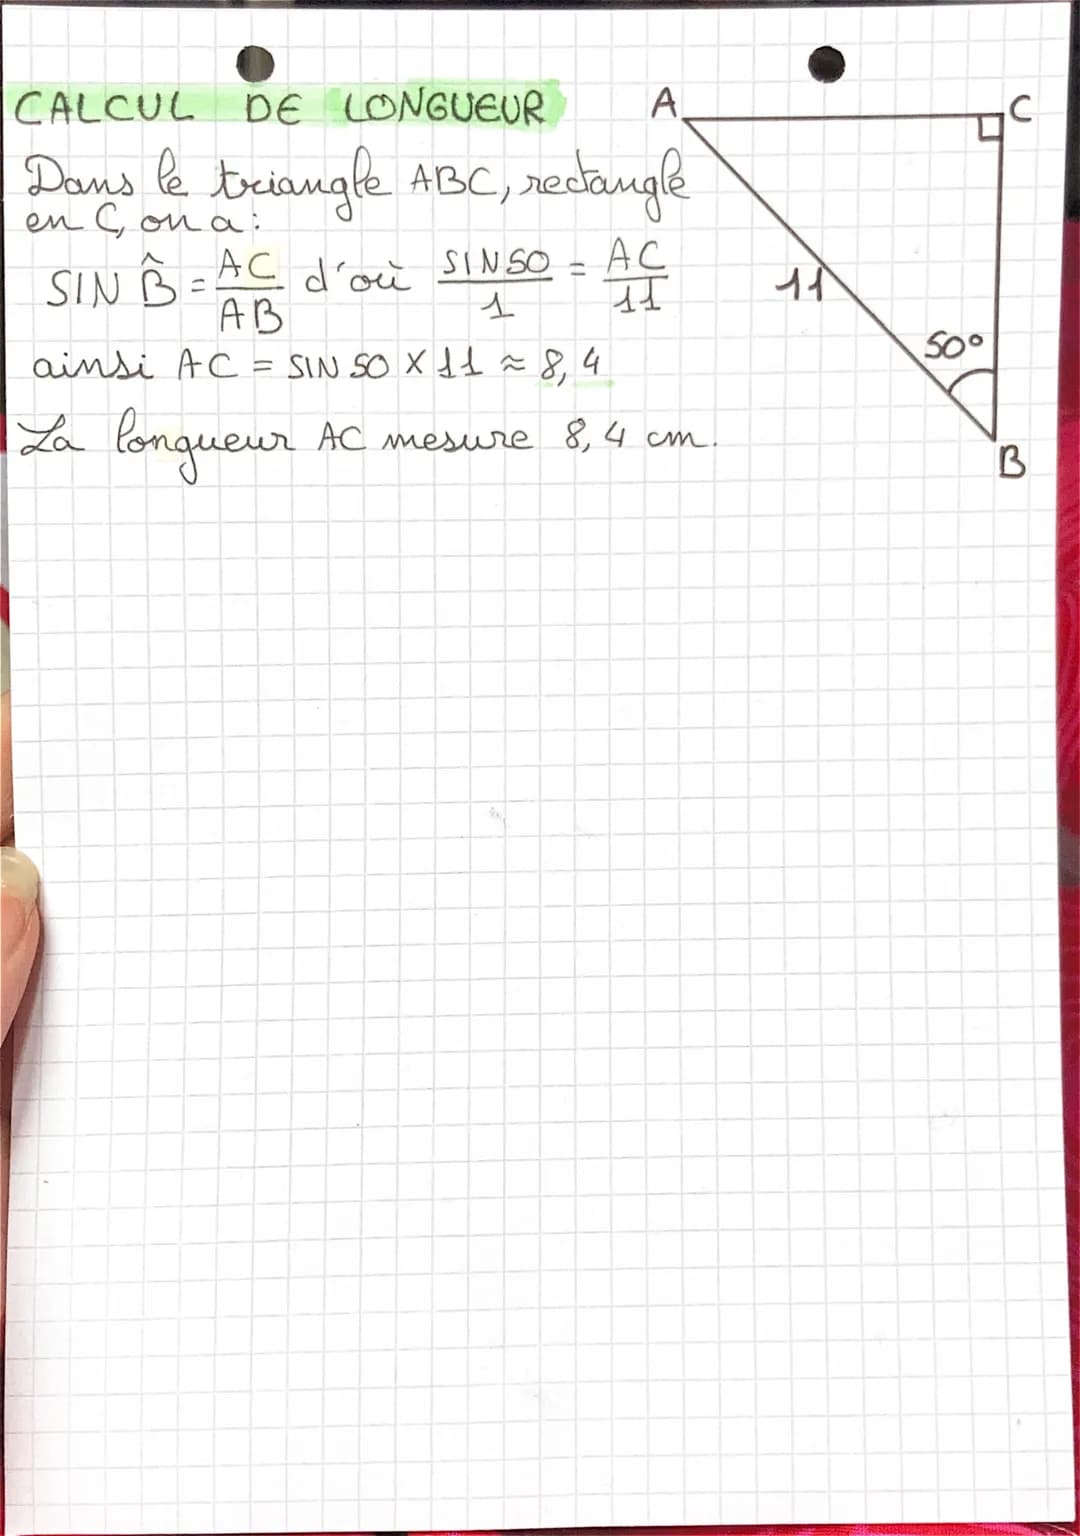 CALCUL DE LONGUEUR
Dans le triangle ABC, rectangle
en C, on a:
SIN B̂ = AC/AB d'où SIN50/1 = AC/11
ainsi AC = SIN 50 X 11 ≈ 8,4
La longueur AC mesure 8,4 cm.
A
C
11
50°
B